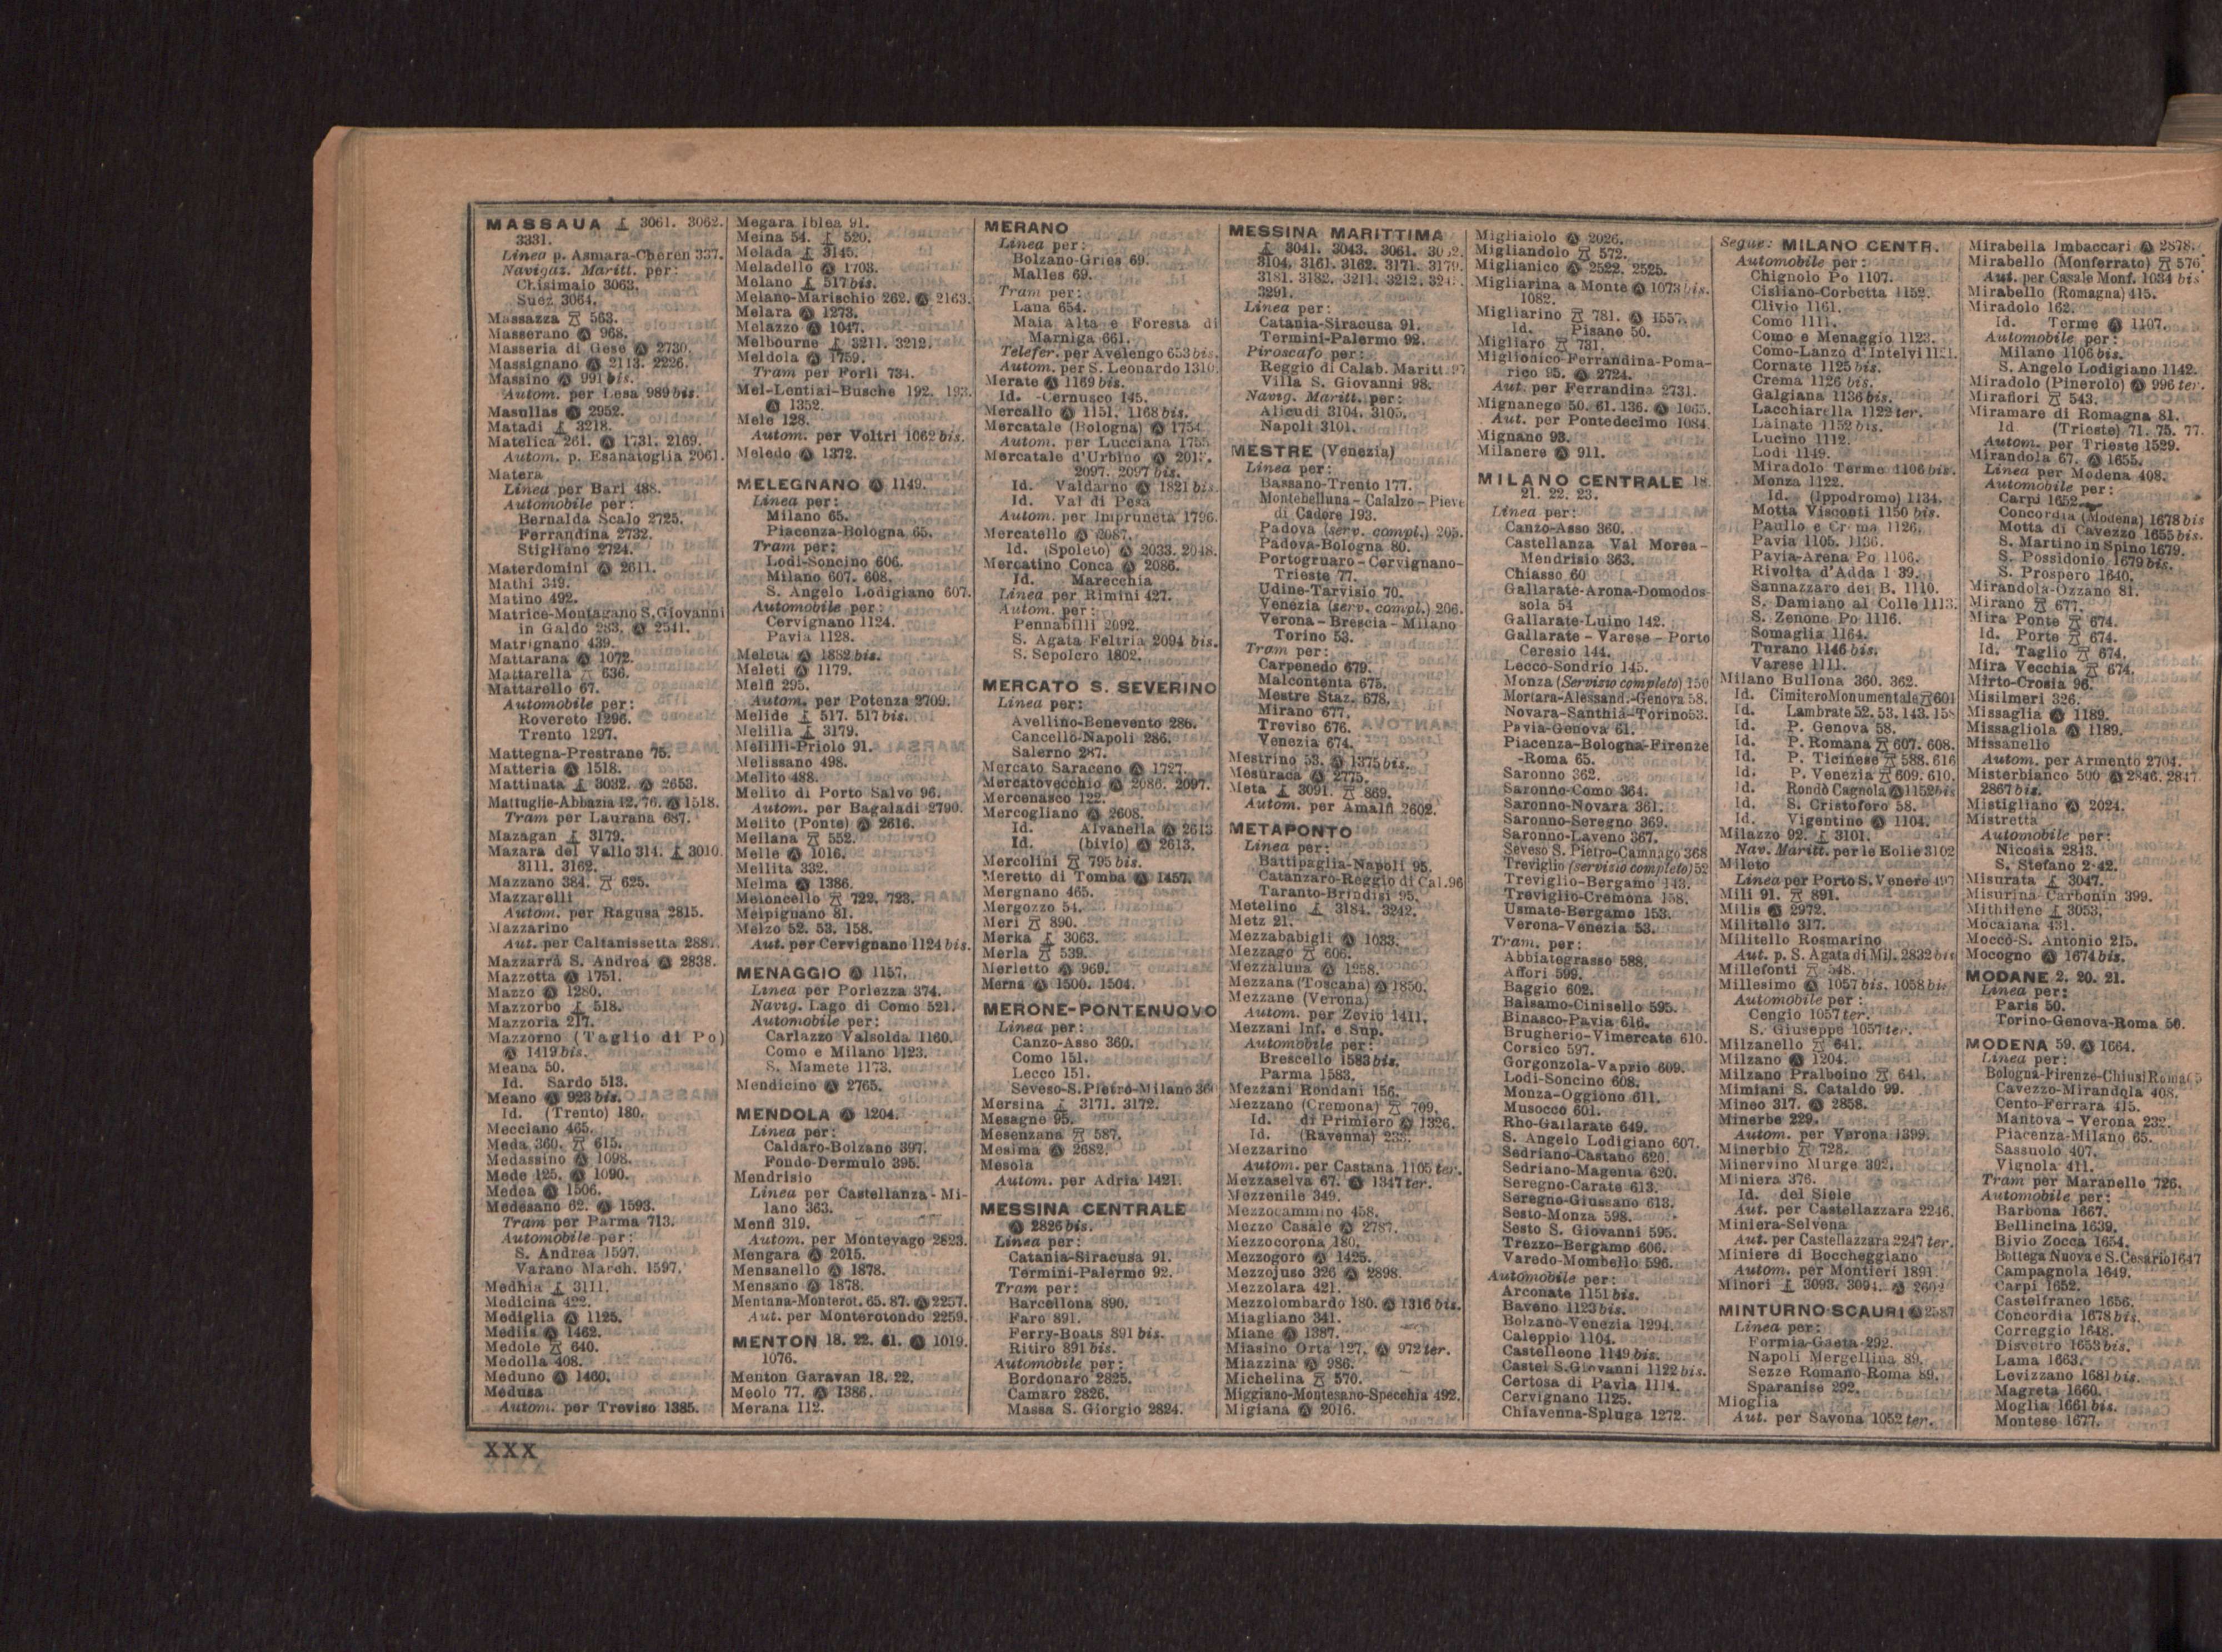 MASSAUA 3061. 3062.
3331.
Linea p. Asmara-Cheren 337.
Navigaz. Maritt. per:
Chisimaio 3063.
Suez 3064.
Massazza 563.
Masserano 968.
Masseria di Gese 2730.
Massignano 2113. 2226.
Massino 991 bis.
Autom. per Lesa 989 bis.
Masullas 2952.
Matadi 3218.
Matelica 261. 1731. 2169.
Autom. p. Esanatoglia 2061.
Matera
Linea per Bari 488.
Automobile per:
Bernalda Scalo 2725.
Ferrandina 2732.
Stigliano 2724.
Materdomini 2611.
Mathi 349.
Matino 492.
Matrice-Montagano S. Giovanni
in Galdo 283. 2541.
Matrignano 439.
Mattarana 1072.
Mattarella 636.
Mattarello 67.
Automobile per:
Rovereto 1296.
Trento 1297.
Mattegna-Prestrane 75.
Matteria 1518.
Mattinata 3032. 2653.
Mattuglie-Abbazia 12. 76. 1518.
Tram per Laurana 687.
Mazagan 3179.
Mazara del Vallo 314. 3010.
3111. 3162.
Mazzano 384. 625.
Mazzarelli
Autom. per Ragusa 2815.
Mazzarino
Aut. per Caltanissetta
Mazzarrà S. Andrea 2838.
Mazzetta 1751.
Mazzo 1280.
Mazzorbo 518.
Mazzoria 217.
Mazzorno (Taglio di Po)
1419 bis.
Meana 50.
Id. Sardo 513.
Meano 923 bis.
Id. (Trento) 180.
Mecciano 465.
Meda 360. 615.
Medassino 1098.
Mede 125. 1090.
Medea 1506.
Medesano 62. 1593.
Tram per Parma 713.
Automobile per:
S. Andrea 1597.
Varano March. 1597.
Medhia 3111.
Medicina 422.
Mediglia 1125.
Mediis 1462.
Medole 640.
Medolla 408.
Meduno 1460.
Medusa
Autom. per Treviso 1385.
Megara Iblea 91.
Meina 54. 520.
Melada 3145.
Meladello 1703.
Melano 517 bis.
Melano-Marischio 262. 2163.
Melara 1273.
Melazzo 1047.
Melbourne 3211. 3212.
Meldola 1759.
Tram per Forlì 734.
Mel-Lentiai-Busche 192. 193.
1352.
Mele 128.
Autom. per Voltri 1062 bis.
Meledo 1372.
MELEGNANO 1149.
Linea per:
Milano 65.
Piacenza-Bologna 65.
Tram per:
Lodi-Soncino 606.
Milano 607. 608.
S. Angelo Lodigiano 607.
Automobile per:
Cervignano 1124.
Pavia 1128.
Meleta 1882 bis.
Meleti 1179.
Melfi 295.
Autom. per Potenza 2709.
Melide 517. 517 bis.
Melilla 3179.
Melilli-Priolo 91.
Melissano 498.
Melito 488.
Melito di Porto Salvo 96.
Autom. per Bagaladi 2790.
Melito (Ponte) 2616.
Mellana 552.
Melle 1016.
Mellita 332.
Melma 1386.
Meloncello 722. 723.
Melpignano 81.
Melzo 52. 53. 158.
Aut. per Cervignano 1124 bis.
MENAGGIO 1157.
Linea per Porlezza 374.
Navig. Lago di Como 521.
Automobile per:
Carlazzo Valsolda 1160.
Como e Milano 1123.
S. Mamete 1173.
Mendicino 2765.
MENDOLA 1204.
Linea per:
Caldaro-Bolzano 397.
Fondo-Dermulo 395.
Mendrisio
Linea per Castellanza-Mi-
lano 363.
Menfi 319.
Autom. per Montevago 2823.
Mengara 2015.
Mensanello 1878.
Mensano 1878.
Mentana-Monterot. 65. 87. 2257.
Aut. per Monterotondo 2259.
MENTON 18. 22. 61. 1019.
1076.
Menton Garavan 18. 22.
Meolo 77. 1386.
Merana 112.
MERANO
Linea per:
Bolzano-Gries 69.
Malles 69.
Tram per:
Lana 654.
Maia Alta e Foresta di
Marniga 661.
Telefer. per Avelengo 653 bis.
Autom. per S. Leonardo 1310.
Merate 1169 bis.
Id. -Cernusco 145.
Mercallo 1151. 1168 bis.
Mercatale (Bologna) 1754.
Autom. per Lucciana 1755.
Mercatale d'Urbino
2097. 2097 bis.
Id. Valdarno 1821 bis.
Id. Val di Pesa
Autom. per Impruneta 1796.
Mercatello 2087.
Id. (Spoleto) 2033. 2048.
Mercatino Conca 2086.
Id. Marecchia
Linea per Rimini 427.
Autom. per:
Pennabilli 2092.
S. Agata Feltria 2094 bis.
S. Sepolcro 1802.
MERCATO S. SEVERINO
Linea per:
Avellino-Benevento 286.
Cancello-Napoli 286.
Salerno 287.
Mercato Saraceno 1727.
Mercatovecchio 2086. 2097.
Mercenasco 122.
Mercogliano 2608.
Id. Alvanella 2613.
Id. (bivio) 2613.
Mercolini 795 bis.
Meretto di Tomba 1457.
Mergnano 465.
Mergozzo 54.
Meri 890.
Merka 3063.
Merla 539.
Merletto 969.
Merna 1500. 1504.
MERONE-PONTENUOVO
Linea per:
Canzo-Asso 360.
Como 151.
Lecco 151.
Seveso-S. Pietro-Milano 360
Mersina 3171. 3172.
Mesagne 95.
Mesenzana 587.
Mesima 2682.
Mesola
Autom. per Adria 1421.
MESSINA CENTRALE
2826 bis.
Linea per:
Catania-Siracusa 91.
Termini-Palermo 92.
Tram per:
Barcellona 890.
Faro 891.
Ferry-Boats 891 bis.
Ritiro 891 bis.
Automobile per:
Bordonaro 2825.
Camaro 2826.
Massa S. Giorgio 2824.
MESSINA MARITTIMA
3041. 3043. 3061.
3104. 3161. 3162. 3171. 3179.
3181. 3182. 3211. 3212.
3291.
Linea per:
Catania-Siracusa 91.
Termini-Palermo 92.
Piroscafo per:
Reggio di Calab. Maritt. 97
Villa S. Giovanni 98.
Navig. Maritt. per:
Alicudi 3104. 3105.
Napoli 3101.
MESTRE (Venezia)
Linea per:
Bassano-Trento 177.
Montebelluna-Calalzo-Pieve
di Cadore 193.
Padova (serv. compl.) 205.
Padova-Bologna 80.
Portogruaro-Cervignano-
Trieste 77.
Udine-Tarvisio 70.
Venezia (serv. compl.) 206.
Verona-Brescia-Milano
Torino 53.
Tram per:
Carpenedo 679.
Malcontenta 675.
Mestre Staz. 678.
Mirano 677.
Treviso 676.
Venezia 674.
Mestrino 53. 1375 bis.
Mesuraca 2775.
Meta 3091. 869.
Autom. per Amalfi 2602.
METAPONTO
Linea per:
Battipaglia-Napoli 95.
Catanzaro-Reggio di Cal. 96
Taranto-Brindisi 95.
Metelino 3184. 3242.
Metz 21.
Mezzababigli 1033.
Mezzago 606.
Mezzaluna 1258.
Mezzana (Toscana) 1850.
Mezzane (Verona)
Autom. per Zevio 1411.
Mezzani Inf. e Sup.
Automobile per:
Brescello 1583 bis.
Parma 1583.
Mezzani Rondani 156.
Mezzano (Cremona) 709.
Id. di Primiero 1326.
Id. (Ravenna) 233.
Mezzarino
Autom. per Castana 1105 ter.
Mezzaselva 67. 1347 ter.
Mezzenile 349.
Mezzocammino 458.
Mezzo Casale 2787.
Mezzocorona 180.
Mezzogoro 1425.
Mezzojuso 326 2898.
Mezzolara 421.
Mezzolombardo 180. 1316 bis.
Miagliano 341.
Miane 1387.
Miasino Orta 127. 972 ter.
Miazzina 986.
Michelina 570.
Miggiano-Montesano-Specchia 492.
Migiana 2016.
Migliaiolo 2026.
Migliandolo 572.
Miglianico 2522. 2525.
Migliarina a Monte 1073 bis.
1082.
Migliarino 781. 1557.
Id. Pisano 50.
Migliaro 731.
Miglionico-Ferrandina-Poma-
rico 95. 2724.
Aut. per Ferrandina 2731.
Mignanego 50. 61. 136. 1065.
Aut. per Pontedecimo 1084.
Mignano 93.
Milanere 911.
MILANO CENTRALE 18.
21. 22. 23.
Linea per:
Canzo-Asso 360.
Castellanza Val Morea-
Mendrisio 363.
Chiasso 60
Gallarate-Arona-Domodos-
sola 54
Gallarate-Luino 142.
Gallarate-Varese-Porto
Ceresio 144.
Lecco-Sondrio 145.
Monza (Servizio completo) 150
Mortara-Alessand.-Genova 58.
Novara-Santhià-Torino 53.
Pavia-Genova 61.
Piacenza-Bologna-Firenze
-Roma 65.
Saronno 362.
Saronno-Como 364.
Saronno-Novara 361.
Saronno-Seregno 369.
Saronno-Laveno 367.
Seveso S. Pietro-Camnago 368
Treviglio (servizio completo) 52
Treviglio-Bergamo 143.
Treviglio-Cremona 158.
Usmate-Bergamo 153.
Verona-Venezia 53.
Tram. per:
Abbiategrasso 588.
Affori 599.
Baggio 602.
Balsamo-Cinisello 595.
Binasco-Pavia 616.
Brugherio-Vimercate 610.
Corsico 597.
Gorgonzola-Vaprio 609.
Lodi-Soncino 608.
Monza-Oggiono 611.
Musocco 601.
Rho-Gallarate 649.
S. Angelo Lodigiano 607.
Sedriano-Castano 620.
Sedriano-Magenta 620.
Seregno-Carate 613.
Seregno-Giussano 613.
Sesto-Monza 598.
Sesto S. Giovanni 595.
Trezzo-Bergamo 606.
Varedo-Mombello 596.
Automobile per:
Arconate 1151 bis.
Baveno 1123 bis.
Bolzano-Venezia 1294.
Caleppio 1104.
Castelleone 1149 bis.
Castel S. Giovanni 1122 bis.
Certosa di Pavia 1114.
Cervignano 1125.
Chiavenna-Spluga 1272.
Segue: MILANO CENTR.
Automobile per:
Chignolo Po 1107.
Cisliano-Corbetta 1152.
Clivio 1161.
Como 1111.
Como e Menaggio 1123.
Como-Lanzo d'Intelvi 1121.
Cornate 1125 bis.
Crema 1126 bis.
Galgiana 1136 bis.
Lacchiarella 1122 ter.
Lainate 1152 bis.
Lucino 1112.
Lodi 1149.
Miradolo Terme 1106 bis.
Monza 1122.
Id. (Ippodromo) 1134.
Motta Visconti 1150 bis.
Paullo e Crema 1126.
Pavia 1105. 1136.
Pavia-Arena Po 1106.
Rivolta d'Adda 1 39.
Sannazzaro dei B. 1110.
S. Damiano al Colle 1113.
S. Zenone Po 1116.
Somaglia 1164.
Turano 1146 bis.
Varese 1111.
Milano Bullona 360. 362.
Id. Cimitero Monumentale 601
Id. Lambrate 52. 53. 143. 158
Id. P. Genova 58.
Id. P. Romana 607. 608.
Id. P. Ticinese 588. 616
Id. P. Venezia 609. 610.
Id. Rondò Cagnola 1152 bis
Id. S. Cristoforo 58.
Id. Vigentino 1104.
Milazzo 92. 3101.
Nav. Maritt. per le Eolie 3102
Mileto
Linea per Porto S. Venere 497
Mili 91. 891.
Milis 2972.
Militello 317.
Militello Rosmarino
Aut. p. S. Agata di Mil. 2832 bis
Millefonti 548.
Millesimo 1057 bis. 1058 bis
Automobile per:
Cengio 1057 ter.
S. Giuseppe 1057 ter.
Milzanello 641.
Milzano 1204.
Milzano Pralboino 641.
Mimiani S. Cataldo 99.
Mineo 317. 2858.
Minerbe 229.
Autom. per Verona 1399.
Minerbio 728.
Minervino Murge 302.
Miniera 376.
Id. del Siele
Aut. per Castellazzara 2246.
Miniera-Selvena
Aut. per Castellazzara 2247 ter.
Miniere di Boccheggiano
Autom. per Montieri 1891.
Minori 3093. 3094. 2602
MINTURNO-SCAURI 2587
Linea per:
Formia-Gaeta 292.
Napoli Mergellina 89.
Sezze Romano-Roma 89.
Sparanise 292.
Mioglia
Aut. per Savona 1052 ter.
Mirabella Imbaccari 2878.
Mirabello (Monferrato) 576
Aut. per Casale Monf. 1034 bis
Mirabello (Romagna) 415.
Miradolo 162.
Id. Terme 1107.
Automobile per:
Milano 1106 bis.
S. Angelo Lodigiano 1142.
Miradolo (Pinerolo) 996 ter.
Mirafiori 543.
Miramare di Romagna 81.
Id (Trieste) 71. 75. 77.
Autom. per Trieste 1529.
Mirandola 67. 1655.
Linea per Modena 408.
Automobile per:
Carpi 1652.
Concordia (Modena) 1678 bis
Motta di Cavezzo 1655 bis.
S. Martino in Spino 1679.
S. Possidonio 1679 bis.
S. Prospero 1640.
Mirandola-Ozzano 81.
Mirano 677.
Mira Ponte 674.
Id. Porte 674.
Id. Taglio 674.
Mira Vecchia 674.
Mirto-Crosia 96.
Misilmeri 326.
Missaglia 1189.
Missagliola 1189.
Missanello
Autom. per Armento 2704.
Misterbianco 500 2846. 2847.
2867 bis.
Mistigliano 2024.
Mistretta
Automobile per:
Nicosia 2843.
S. Stefano
Misurata 3047.
Misurina-Carbonin 399.
Mithilene 3053.
Mocaiana 431.
Moccò-S. Antonio 215.
Mocogno 1674 bis.
MODANE 2. 20. 21.
Linea per:
Paris 50.
Torino-Genova-Roma 50.
MODENA 59. 1664.
Linea per:
Bologna-Firenze-Chiusi Roma 65
Cavezzo-Mirandola 408.
Cento-Ferrara 415.
Mantova-Verona 232.
Piacenza-Milano 65.
Sassuolo 407.
Vignola 411.
Tram per Maranello 726.
Automobile per:
Barbona 1667.
Bellincina 1639.
Bivio Zocca 1654.
Bottega Nuova e S. Cesario 1647
Campagnola 1649.
Carpi 1652.
Castelfranco 1656.
Concordia 1678 bis.
Correggio 1648.
Disvetro 1653 bis.
Lama 1663.
Levizzano 1681 bis.
Magreta 1660.
Moglia 1661 bis.
Montese 1677.
XXX